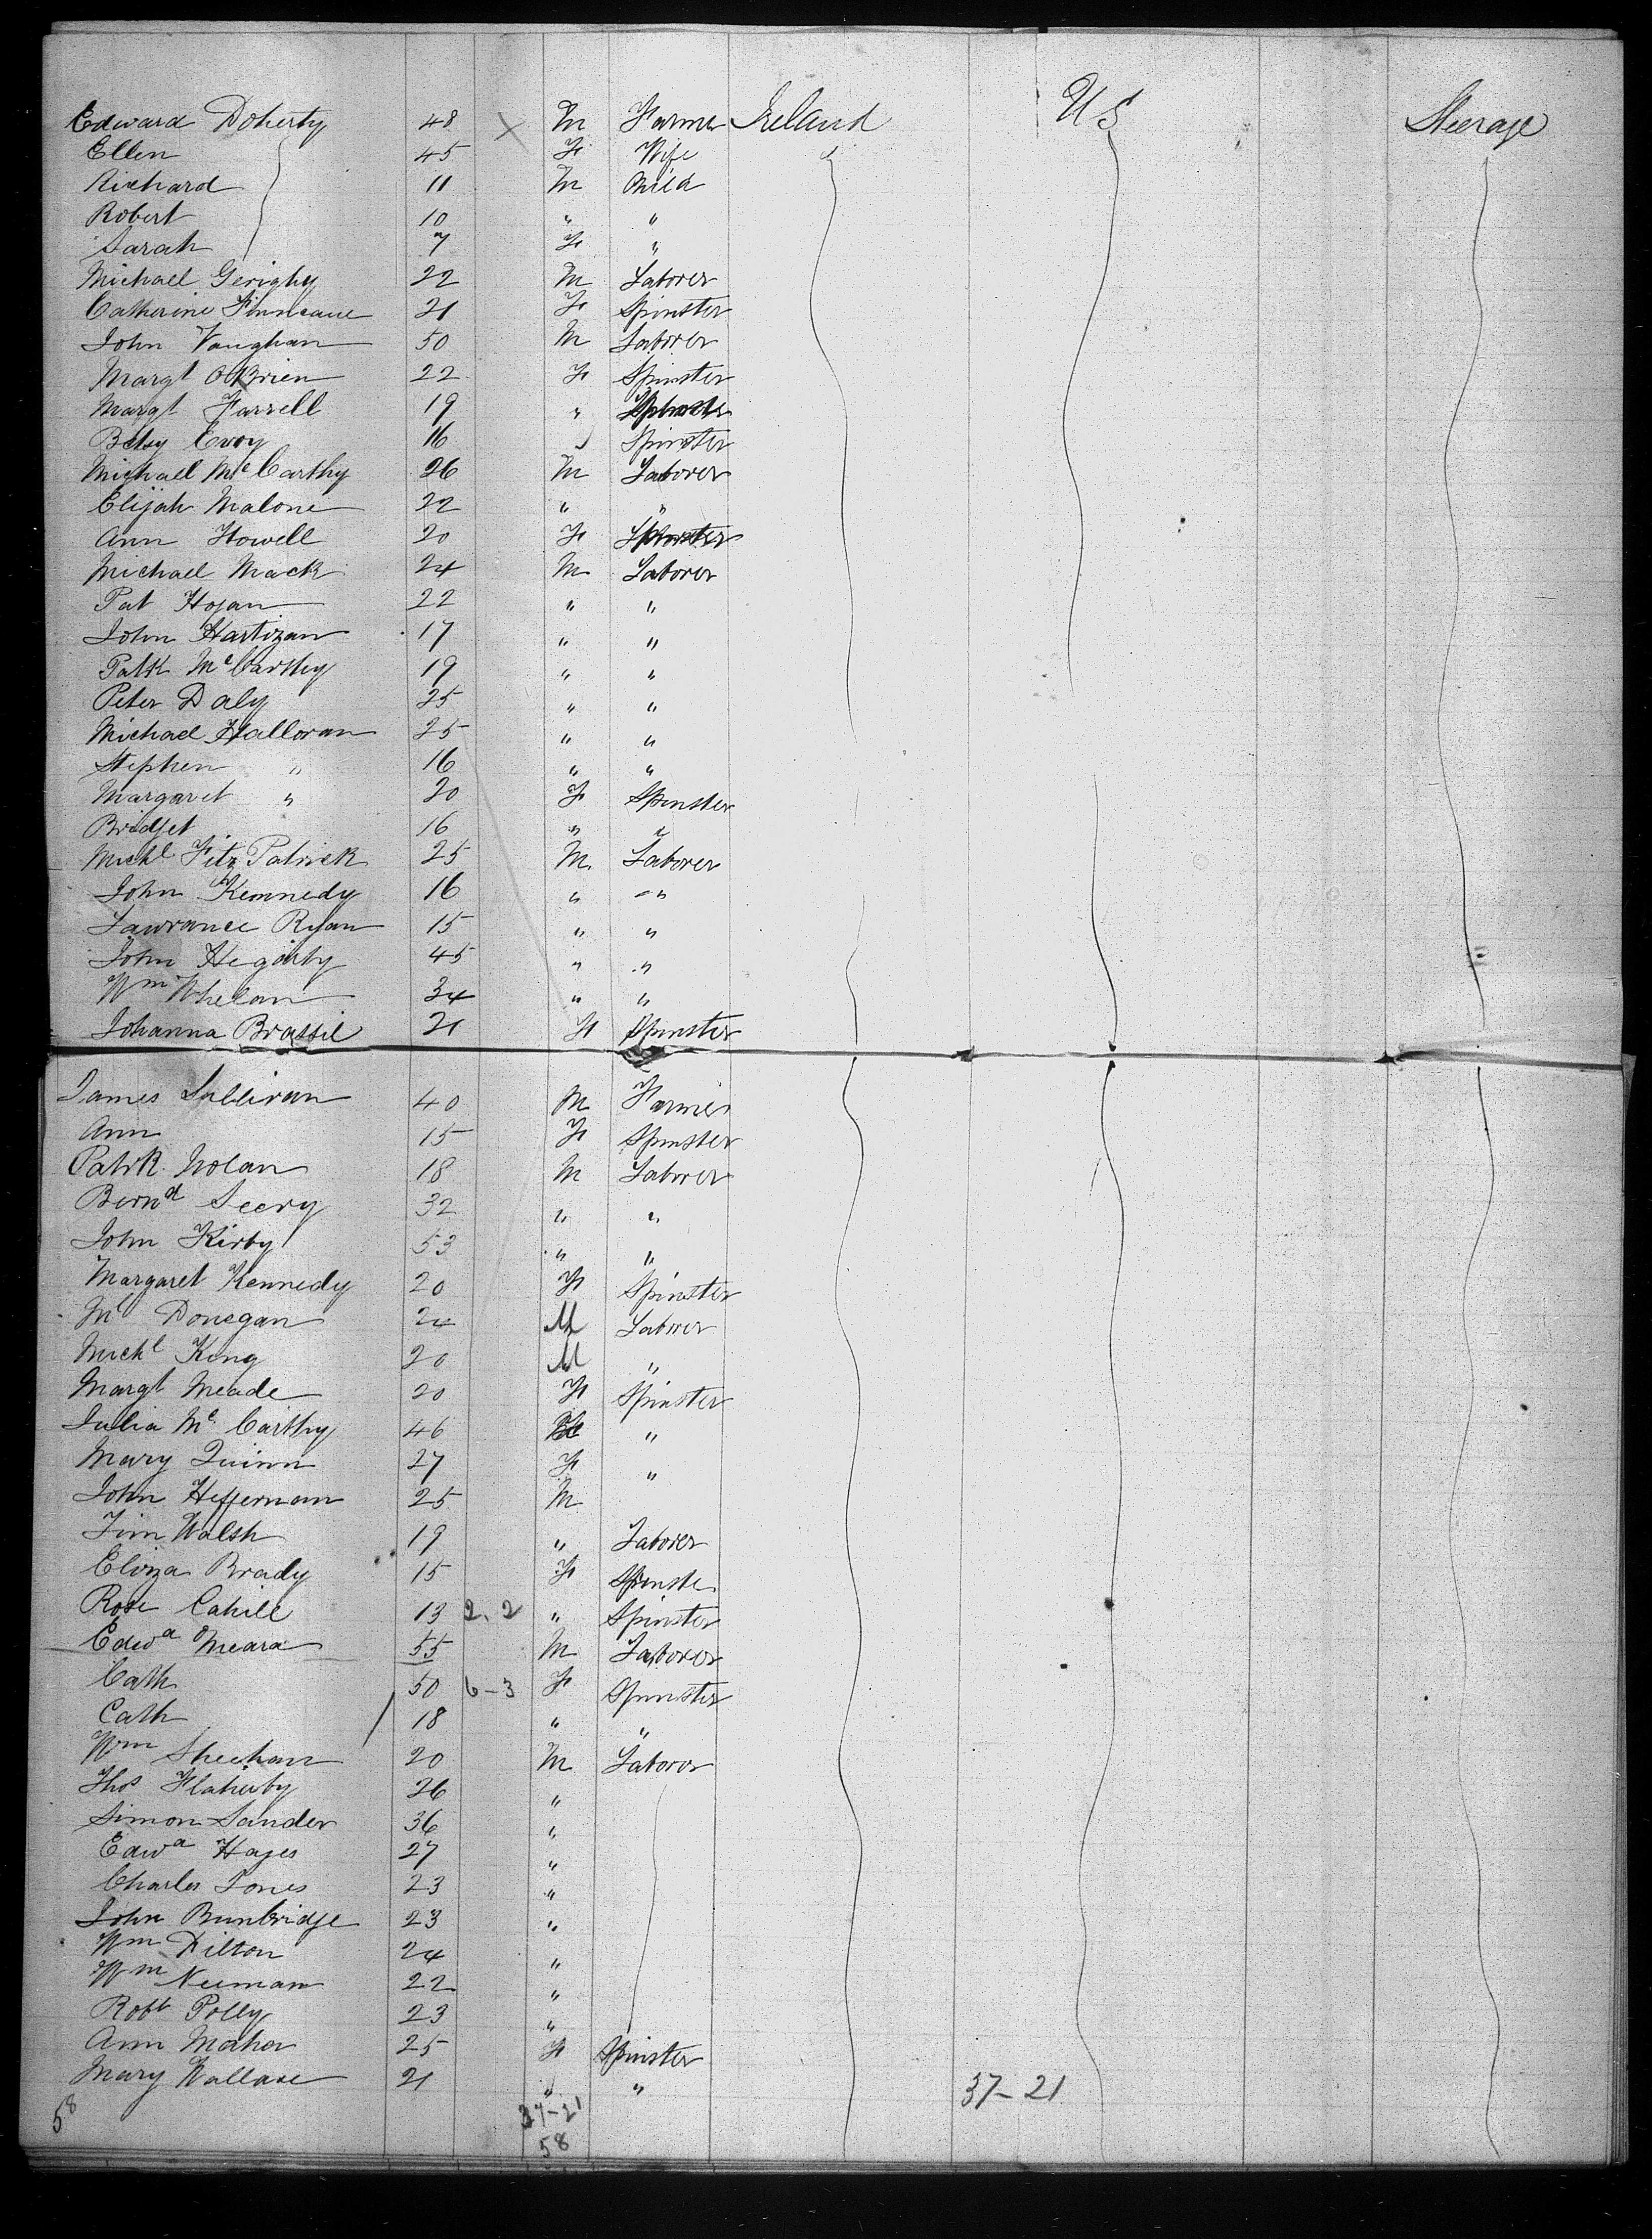 Edward Doherty 48 X M Farmer Ireland US Steerage
Ellen 45 F Wife
Richard 11 M Child
Robert 10 " "
Sarah 7 F "
Michael Gerighy 22 M Laborer
Catherine Finncane 21 F Spinster
John Vaughan 50 M Laborer
Margt O'Brien 22 F Spinster
Margt Farrell 19 " Spinster
Betsy Evoy 16 " Spinster
Michael McCarthy 26 M Laborer
Elijah Malone 22 " "
Ann Howell 20 F Spinster
Michael Mack 24 M Laborer
Pat Hogan 22 " "
John Hartigan 17 " "
Patk McCarthy 19 " "
Peter Daly 25 " "
Michael Halloran 25 " "
Stephen " 16 " "
Margaret " 20 F Spinster
Bridget 16 " "
Michl Fitz Patrick 25 M Laborer
John Kennedy 16 " "
Lawrance Ryan 15 " "
John Hegarty 45 " "
Wm Whelan 34 " "
Johanna Brassil 21 F Spinster
James Sullivan 40 M Farmer
Ann 15 F Spinster
Patrk Nolan 18 M Laborer
Bernd Seery 32 " "
John Kirby 53 " "
Margaret Kennedy 20 F Spinster
Ml Donegan 24 M Laborer
Michl King 20 M "
Margt Meade 20 F Spinster
Julia McCarthy 46 "
Mary Quinn 27 F "
John Heffernan 25 M
Tim Walsh 19 " Laborer
Eliza Brady 15 F Spinste
Rose Cahill 13 2.2 " Spinster
Edwd Omeara 55 M Laborer
Cath 50 6-3 F Spinster
Cath 18 " "
Wm Sheehan 20 M Laboror
Thos Flaherty 26 "
Simon Sander 36 "
Edwd Hayes 27 "
Charles Jones 23 "
John Bunbridge 23 "
Wm Dilton 24 "
Wm Neeman 22 "
Robt Polly 23 "
Ann Mahor 25 F Spinster
Mary Wallace 21 " "
58 37-21 37-21
58